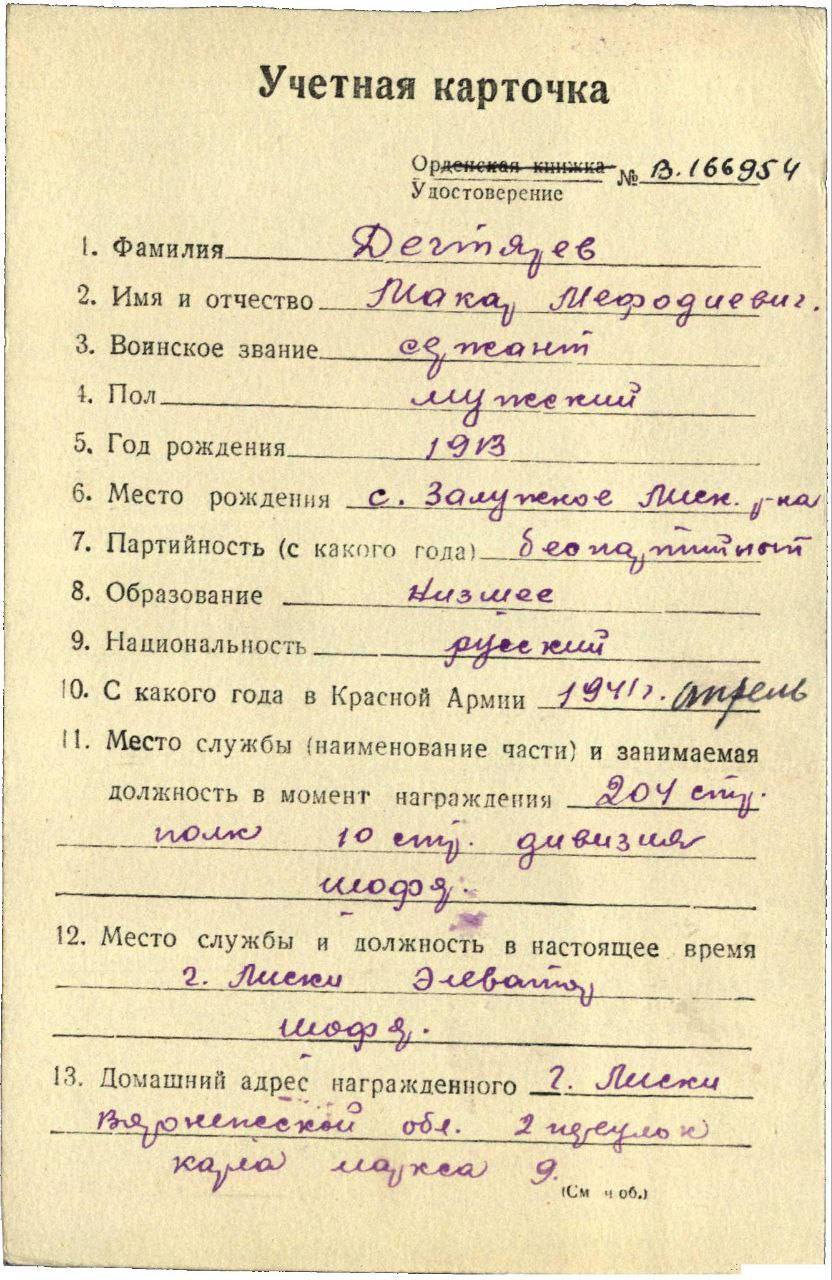 Учетная карточка
Орденская книжка № В.166954
Удостоверение
1. Фамилия Дегтярев
2. Имя и отчество Макар Мефодиевич.
3. Воинское звание сержант
4. Пол мужский
5. Год рождения 1913
6. Место рождения с. Залужное Лиск. р-на
7. Партийность (с какого года) беспартийный
8. Образование низшее
9. Национальность русский
10. С какого года в Красной Армии 1941г. апрель
11. Место службы (наименование части) и занимаемая
должность в момент награждения 204 стр.
полк 10 стр. дивизия
шофер.
12. Место службы и должность в настоящее время
г. Лиски Элеватор
шофер.
13. Домашний адрес награжденного г. Лиски
Воронежской обл. 2 переулок
карла маркса 9.
(См н об.)